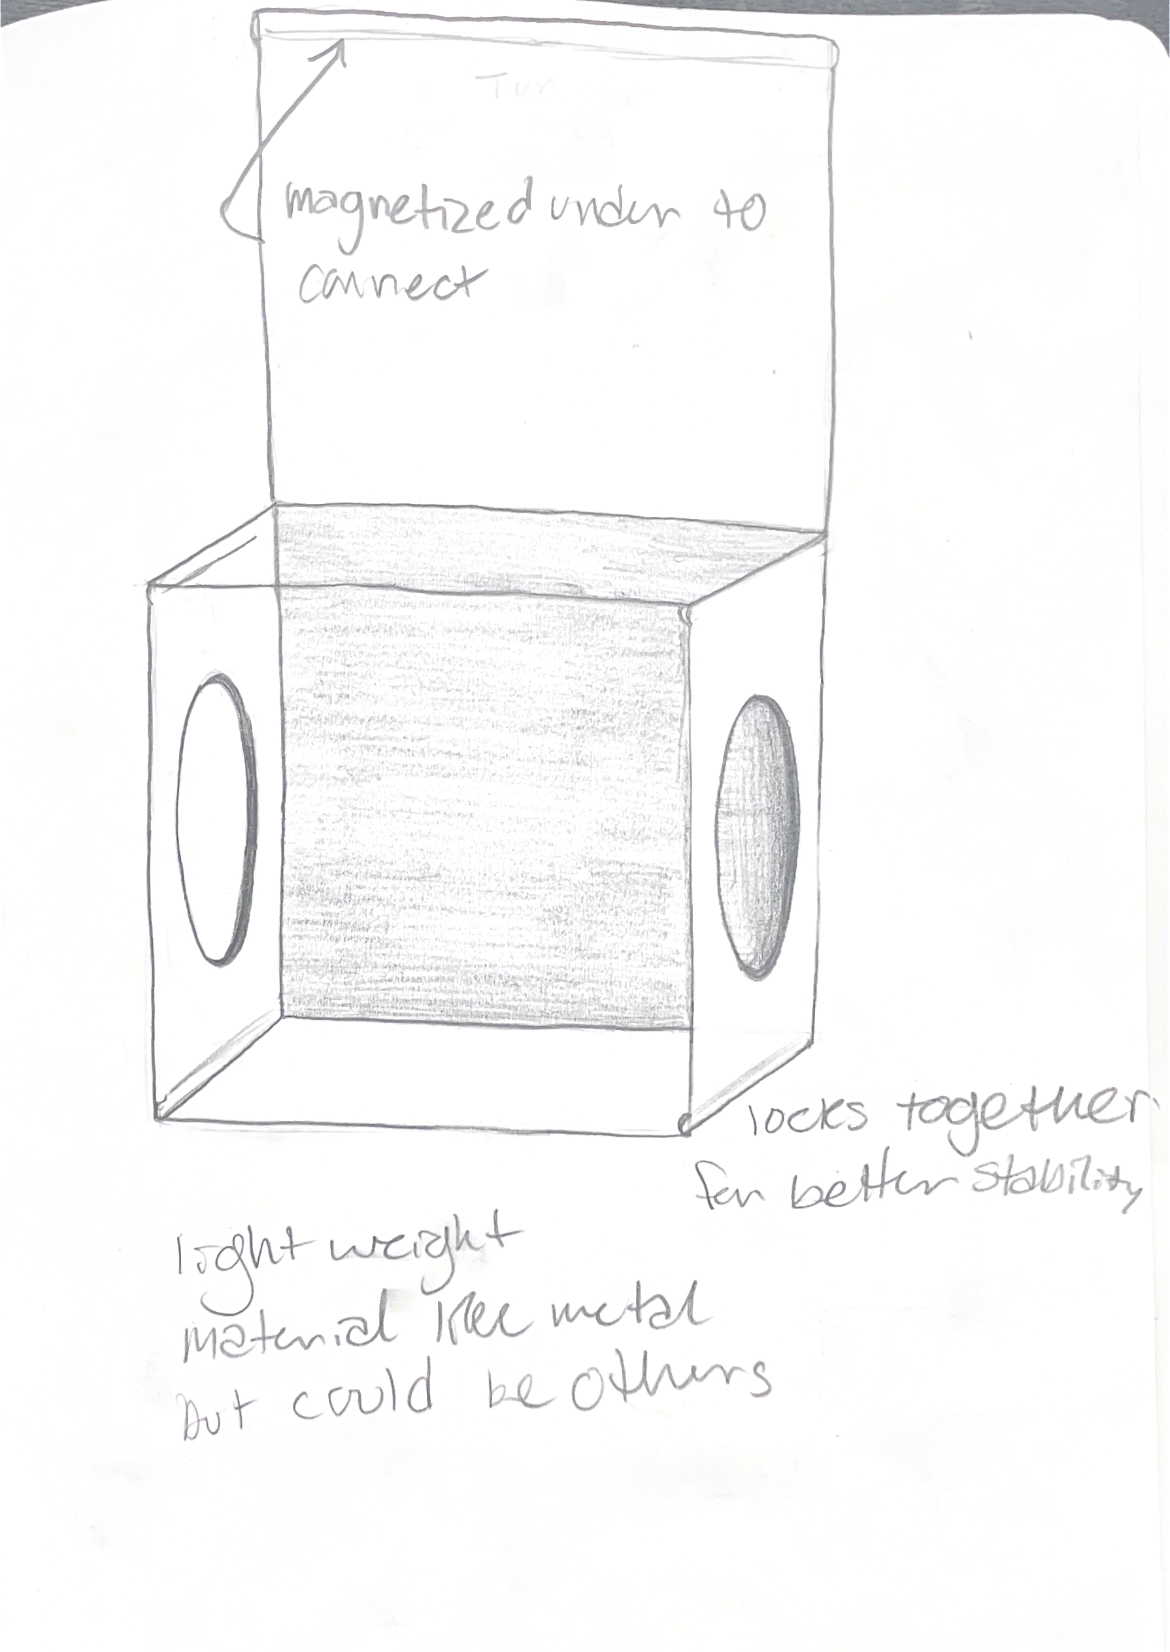 Tur
magnetized under to
connect
locks together
for better stability
light weight
material like metal
but could be others